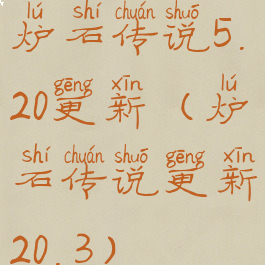 lú shí chuán shuō
炉石传说5.
gēng xīn lú
20更新(炉
shí chuán shuō gēng xīn
石传说更新
20.3)